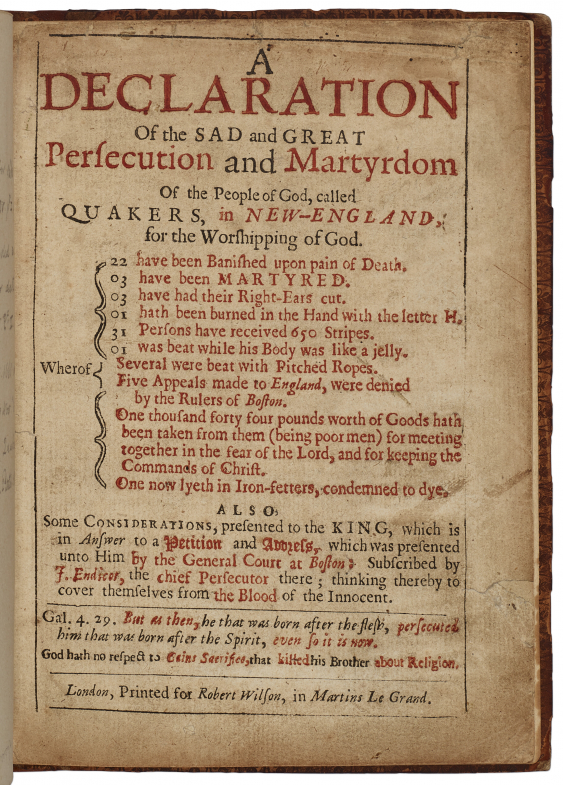 A
DECLARATION
Of the SAD and GREAT
Perſecution and Martyrdom
Of the People of God, called
QUAKERS, in NEW-ENGLAND,
for the Worſhipping of God.
22 have been Baniſhed upon pain of Death.
03 have been MARTYRED.
03 have had their Right-Ears cut.
01 hath been burned in the Hand with the letter H.
31 Perſons have received 650 Stripes.
01 was beat while his Body was like a jelly.
Wherof Several were beat with Pitched Ropes.
Five Appeals made to England, were denied
by the Rulers of Boſton.
One thouſand forty four pounds worth of Goods hath
been taken from them (being poor men) for meeting
together in the fear of the Lord, and for keeping the
Commands of Chriſt.
One now lyeth in Iron-fetters, condemned to dye.
ALSO,
Some CONSIDERATIONS, preſented to the KING, which is
in Anſwer to a Petition and Addreſs, which was preſented
unto Him by the General Court at Boſton: Subſcribed by
J. Endicot, the chief Perſecutor there; thinking thereby to
cover themſelves from the Blood of the Innocent.
Gal. 4. 29. But as then, he that was born after the fleſh, perſecuted
him that was born after the Spirit, even ſo it is now.
God hath no reſpect to Cains Sacrifice, that killed his Brother about Religion.
London, Printed for Robert Wilſon, in Martins Le Grand.